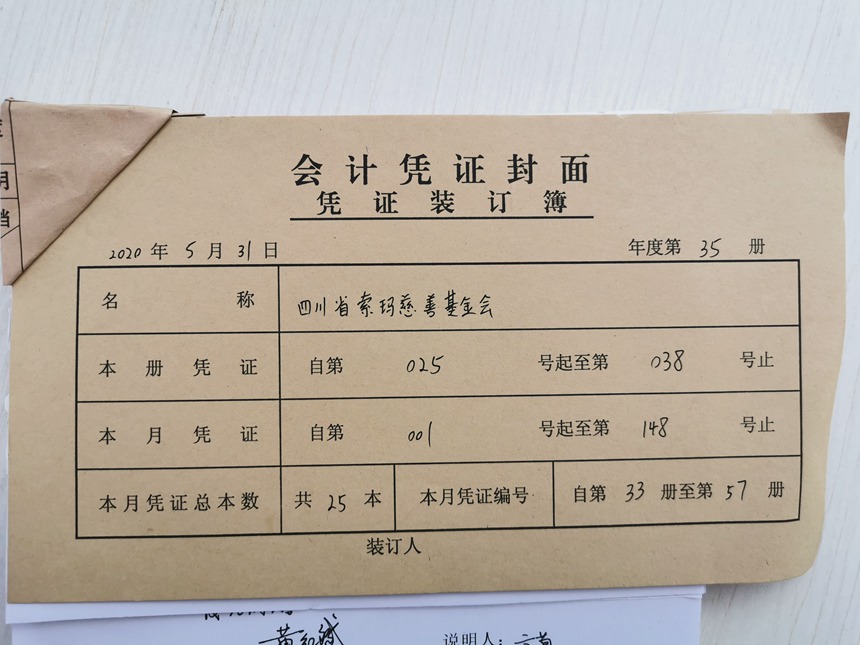 会计凭证封面
凭证装订簿
2020 年 5 月 31 日 年度第 35 册
名称 四川省索玛慈善基金会
本册凭证 自第 025 号起至第 038 号止
本月凭证 自第 001 号起至第 148 号止
本月凭证总本数 共 25 本 本月凭证编号 自第 33 册至第 57 册
装订人
说明人：